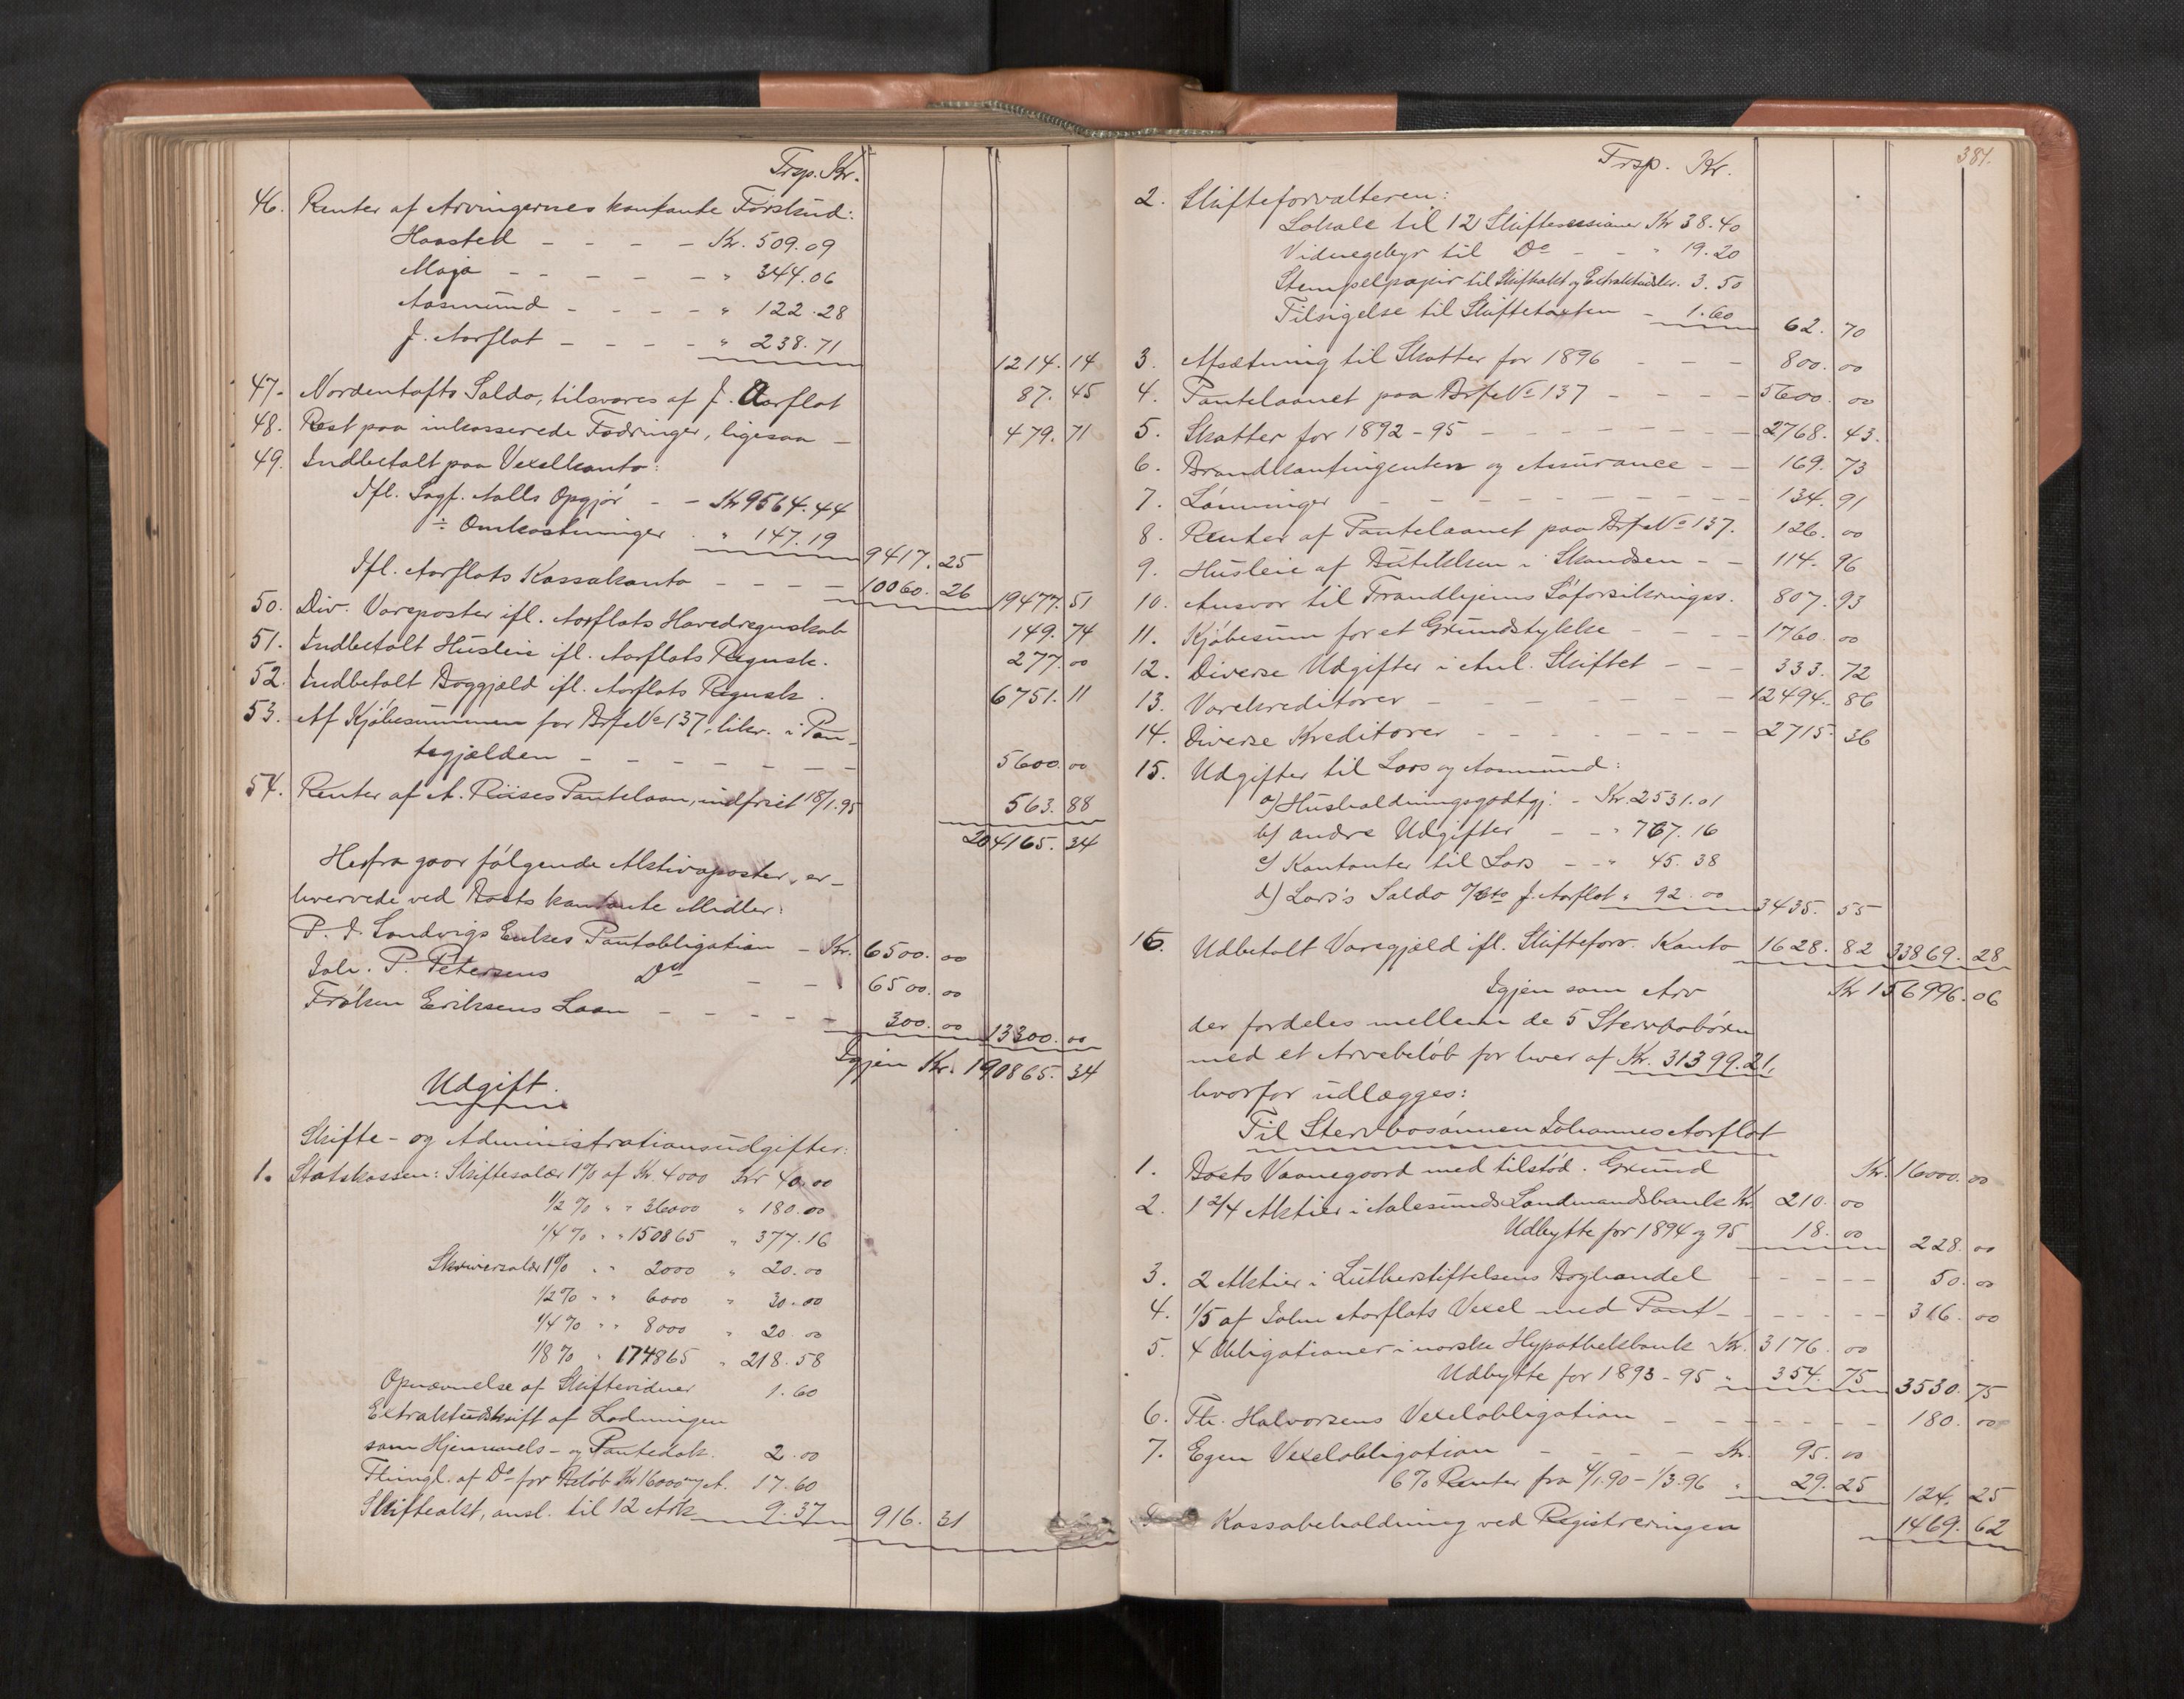 Trsp. Kr.
46. Renter af Arvingernes kontante Forskud:
Haasted - - - - Kr. 509.09
Maja - - - - - " 344.06
Aasmund - - - - " 122.28
J. Aarflot - - - - " 238.71 1214. 14
47. Nordentofts Saldo, tilsvares af J. Aarflot 87. 45
48. Rest paa inkasserede Fodringer, ligesaa - 479. 71
49. Indbetalt paa Vexelkonto:
Ifl. Sagf. Aalls Opgjör - - Kr 9564.44
÷ Omkostninger " 147.19 9417. 25
Ifl. Aarflots Kassakonto - - - - 10060. 26 19477. 51
50. Div. Vareposter ifl. Aarflots Hovedregnskab 149. 74
51. Indbetalt Husleie ifl. Aarflots Regnsk. 277. 00
52. Indbetalt Boggjæld ifl. Aarflots Regnsk. 6751. 11
53. Af Kjöbesummen for Br.f. No 137, likv. i Pan-
tegjælden - - - - - - - 5600. 00
54. Renter af A. Riises Pantelaan, indfriet 18/1.95 563. 88
204165. 34
Herfra gaar følgende Aktivaposter, er-
hvervede ved Boets kontante Midler:
P. I. Sandvigs Enkes Pantobligation - Kr. 6500. 00
Joh. P. Petersens Do - - " 6500. 00
Fröken Eriksens Laan - - - - - 300. 00 13300. 00
Igjen Kr. 190865. 34
Udgift.
Skifte- og Administrationsudgifter:
1. Statskassen: Skiftesalær 1% af Kr. 4000 Kr 40.00
1/2 % " " 36000 " 180.00
1/4 % " " 150865 " 377.16
Skriversalær 1% " " 2000 " 20.00
1/2 % " " 6000 " 30.00
1/4 % " " 8000 " 20.00
1/8 % " 174865 " 218.58
Opnævnelse af Skiftevidner 1.60
Extraktudskrift af Lodningen
som Hjemmels- og Pantedok. 2.00
Thingl. af Do for Beløb Kr 16000 og A. 17.60
Skifteakt, ansl. til 12 Ark 9.37 916. 31
381.
Trsp. Kr.
2. Skifteforvalteren:
Lokale til 12 Skiftesessioner Kr 38.40
Vidnegebyr til Do - - " 19.20
Stempelpapir til Skifteakt og Extraktudskr. 3.50
Tilsigelse til Skiftetaxten - 1.60 62. 70
3. Afsætning til Skatter for 1896 - - - 800. 00
4. Pantelaanet paa Br.f. No 137 - - - - 5600. 00
5. Skatter for 1892-95 - - - - - - - 2768. 43.
6. Brandkontingenter og Assurance - - 169. 73
7. Lönninger - - - - - - - - - 134. 91
8. Renter af Pantelaanet paa Br.f. No 137. 126. 00
9. Husleie af Butikken i Skandsen - - 114. 96
10. Ansvar til Trondhjems Söforsikrings. 807. 93
11. Kjöbesum for et Grundstykke - - - - 1760. 00
12. Diverse Udgifter i Anl. Skiftet - - - 333. 72
13. Varekreditorer - - - - - - - 12494. 86
14. Diverse Kreditorer - - - - - - - - 2715. 36
15. Udgifter til Lars og Aasmund:
a) Husholdningsgodtgj. - Kr. 2531.01
b) andre Udgifter - - " 767.16
c) Kontanter til Lars - - " 45.38
d) Lars's Saldo J. Aarflot " 92.00 3435. 55
16. Udbetalt Varegjæld ifl. Skifteforv. Konto 1628. 82 33869. 28
Igjen som Arv Kr 156996. 06
der fordeles mellem de 5 Stervbobörn
med et Arvebeløb for hver af Kr. 31399.21,
hvorfor udlægges:
Til Stervbosönnen Johannes Aarflot
1. Boets Vaanegaard med tilstöd. Grund Kr. 16000. 00
2. 1 2/4 Aktier i Aalesunds Landmandsbank Kr. 210. 00
Udbytte for 1894 og 95 18. 00 228. 00
3. 2 Aktier i Lutherstiftelsens Boghandel - - - - - 50. 00
4. 1/5 af John Aarflots Vexel med Pant - - - - - - 316. 00
5. 4 Obligationer i norske Hypothekbank Kr. 3176. 00
Udbytte for 1893-95 " 354. 75 3530. 75
6. Th. Halvorsens Vexelobligation - - - - - - - 180. 00
7. Egen Vexelobligation - - - - Kr. 95. 00
6% Renter fra 4/1.90 - 1/3.96 " 29. 25 124. 25
Kassabeholdning ved Registreringen 1469. 62